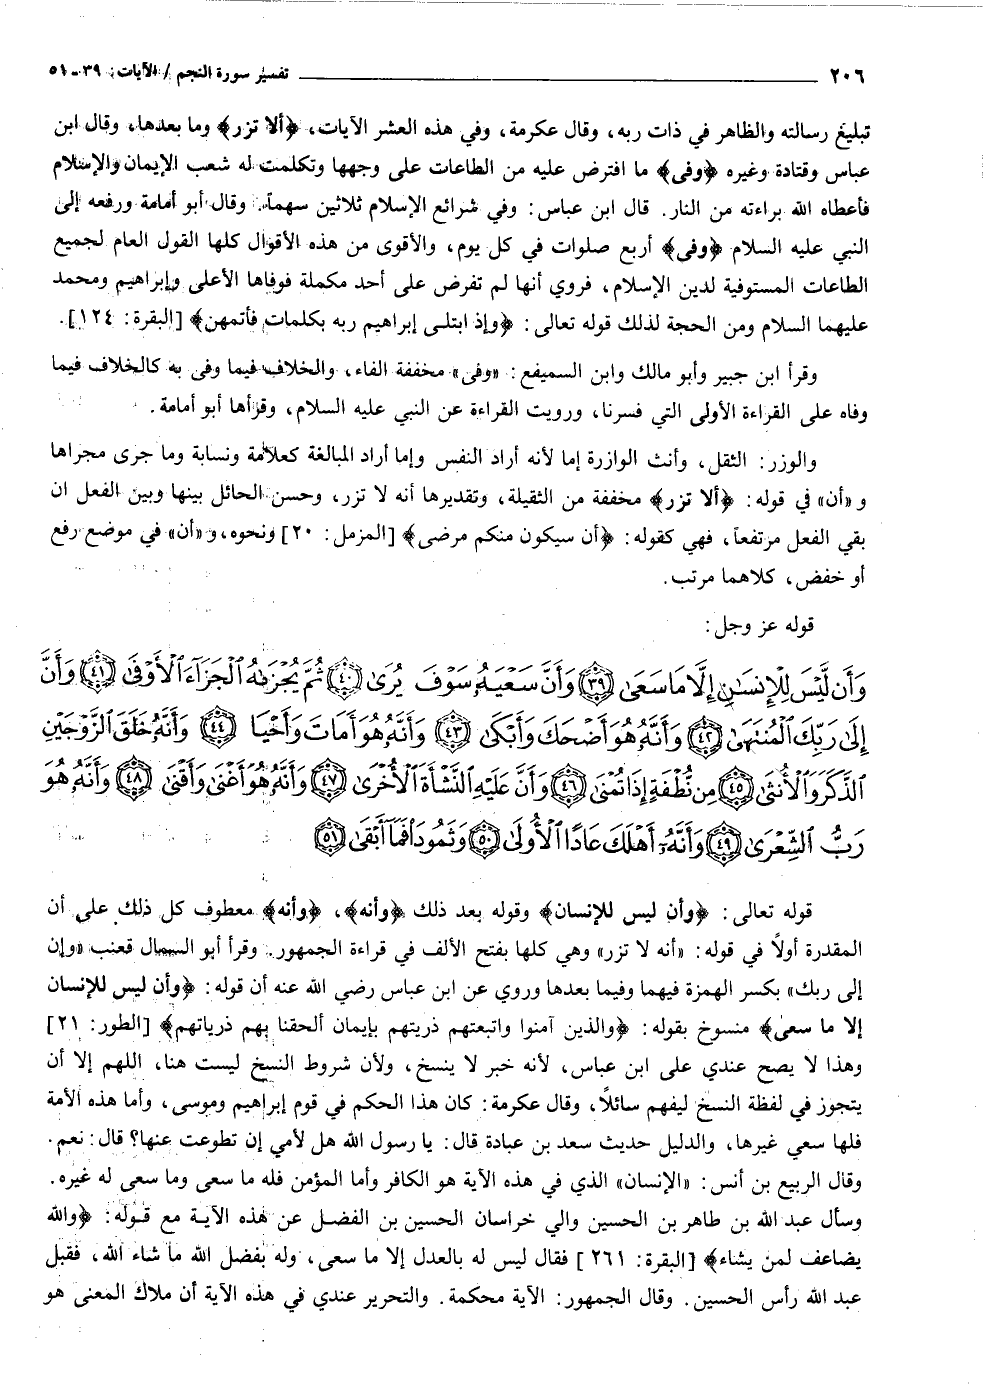 ٢٠٦ تفسير سورة النجم / الآيات: ٣٩-٥١
تبليغ رسالته والظاهر في ذات ربه، وقال عكرمة، وفي هذه العشر الآيات، ﴿ألا تزر﴾ وما بعدها، وقال ابن
عباس وقتادة وغيره ﴿وفى﴾ ما افترض عليه من الطاعات على وجهها وتكلمت له شعب الإيمان والإسلام
فأعطاه الله براءته من النار. قال ابن عباس: وفي شرائع الإسلام ثلاثين سهماً. وقال أبو أمامة ورفعه إلى
النبي عليه السلام ﴿وفى﴾ أربع صلوات في كل يوم، والأقوى من هذه الأقوال كلها القول العام لجميع
الطاعات المستوفية لدين الإسلام، فروي أنها لم تفرض على أحد مكملة فوفاها الأعلى وإبراهيم ومحمد
عليهما السلام ومن الحجة لذلك قوله تعالى: ﴿وإذ ابتلى إبراهيم ربه بكلمات فأتمهن﴾ [البقرة: ١٢٤].
وقرأ ابن جبير وأبو مالك وابن السميفع: «وفى» مخففة الفاء، والخلاف فيما وفى به كالخلاف فيما
وفاه على القراءة الأولى التي فسرنا، ورويت القراءة عن النبي عليه السلام، وقرأها أبو أمامة.
والوزر: الثقل، وأنث الوازرة إما لأنه أراد النفس وإما أراد المبالغة كعلامة ونسابة وما جرى مجراها
و «أن» في قوله: ﴿ألا تزر﴾ مخففة من الثقيلة، وتقديرها أنه لا تزر، وحسن الحائل بينها وبين الفعل ان
بقي الفعل مرتفعاً، فهي كقوله: ﴿أن سيكون منكم مرضى﴾ [المزمل: ٢٠] ونحوه، و «أن» في موضع رفع
أو خفض، كلاهما مرتب.
قوله عز وجل:
وَأَن لَّيْسَ لِلْإِنسَـٰنِ إِلَّا مَا سَعَىٰ ﴿٣٩﴾ وَأَنَّ سَعْيَهُۥ سَوْفَ يُرَىٰ ﴿٤٠﴾ ثُمَّ يُجْزَىٰهُ ٱلْجَزَآءَ ٱلْأَوْفَىٰ ﴿٤١﴾ وَأَنَّ
إِلَىٰ رَبِّكَ ٱلْمُنتَهَىٰ ﴿٤٢﴾ وَأَنَّهُۥ هُوَ أَضْحَكَ وَأَبْكَىٰ ﴿٤٣﴾ وَأَنَّهُۥ هُوَ أَمَاتَ وَأَحْيَا ﴿٤٤﴾ وَأَنَّهُۥ خَلَقَ ٱلزَّوْجَيْنِ
ٱلذَّكَرَ وَٱلْأُنثَىٰ ﴿٤٥﴾ مِن نُّطْفَةٍ إِذَا تُمْنَىٰ ﴿٤٦﴾ وَأَنَّ عَلَيْهِ ٱلنَّشْأَةَ ٱلْأُخْرَىٰ ﴿٤٧﴾ وَأَنَّهُۥ هُوَ أَغْنَىٰ وَأَقْنَىٰ ﴿٤٨﴾ وَأَنَّهُۥ هُوَ
رَبُّ ٱلشِّعْرَىٰ ﴿٤٩﴾ وَأَنَّهُۥٓ أَهْلَكَ عَادًا ٱلْأُولَىٰ ﴿٥٠﴾ وَثَمُودَا۟ فَمَآ أَبْقَىٰ ﴿٥١﴾
قوله تعالى: ﴿وأن ليس للإنسان﴾ وقوله بعد ذلك ﴿وأنه﴾، ﴿وأنه﴾ معطوف كل ذلك على أن
المقدرة أولاً في قوله: «أنه لا تزر» وهي كلها بفتح الألف في قراءة الجمهور. وقرأ أبو السمال قعنب «وإن
إلى ربك» بكسر الهمزة فيهما وفيما بعدها وروي عن ابن عباس رضي الله عنه أن قوله: ﴿وأن ليس للإنسان
إلا ما سعى﴾ منسوخ بقوله: ﴿والذين آمنوا واتبعتهم ذريتهم بإيمان ألحقنا بهم ذرياتهم﴾ [الطور: ٢١]
وهذا لا يصح عندي على ابن عباس، لأنه خبر لا ينسخ، ولأن شروط النسخ ليست هنا، اللهم إلا أن
يتجوز في لفظة النسخ ليفهم سائلاً، وقال عكرمة: كان هذا الحكم في قوم إبراهيم وموسى، وأما هذه الأمة
فلها سعي غيرها، والدليل حديث سعد بن عبادة قال: يا رسول الله هل لأمي إن تطوعت عنها؟ قال: نعم.
وقال الربيع بن أنس: «الإنسان» الذي في هذه الآية هو الكافر وأما المؤمن فله ما سعى وما سعى له غيره.
وسأل عبد الله بن طاهر بن الحسين والي خراسان الحسين بن الفضل عن هذه الآية مع قوله: ﴿والله
يضاعف لمن يشاء﴾ [البقرة: ٢٦١] فقال ليس له بالعدل إلا ما سعى، وله بفضل الله ما شاء الله، فقبل
عبد الله رأس الحسين. وقال الجمهور: الآية محكمة. والتحرير عندي في هذه الآية أن ملاك المعنى هو